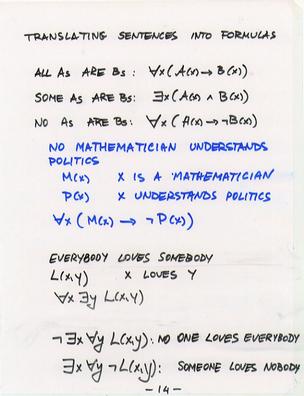 TRANSLATING SENTENCES INTO FORMULAS
ALL As ARE Bs: ∀x(A(x) → B(x))
SOME As ARE Bs: ∃x(A(x) ∧ B(x))
NO As ARE Bs: ∀x(A(x) → ¬B(x))
NO MATHEMATICIAN UNDERSTANDS
POLITICS
M(x) X IS A MATHEMATICIAN
P(x) X UNDERSTANDS POLITICS
∀x(M(x) → ¬P(x))
EVERYBODY LOVES SOMEBODY
L(x,y) X LOVES Y
∀x ∃y L(x,y)
¬∃x ∀y L(x,y): NO ONE LOVES EVERYBODY
∃x ∀y ¬L(x,y): SOMEONE LOVES NOBODY
-14-